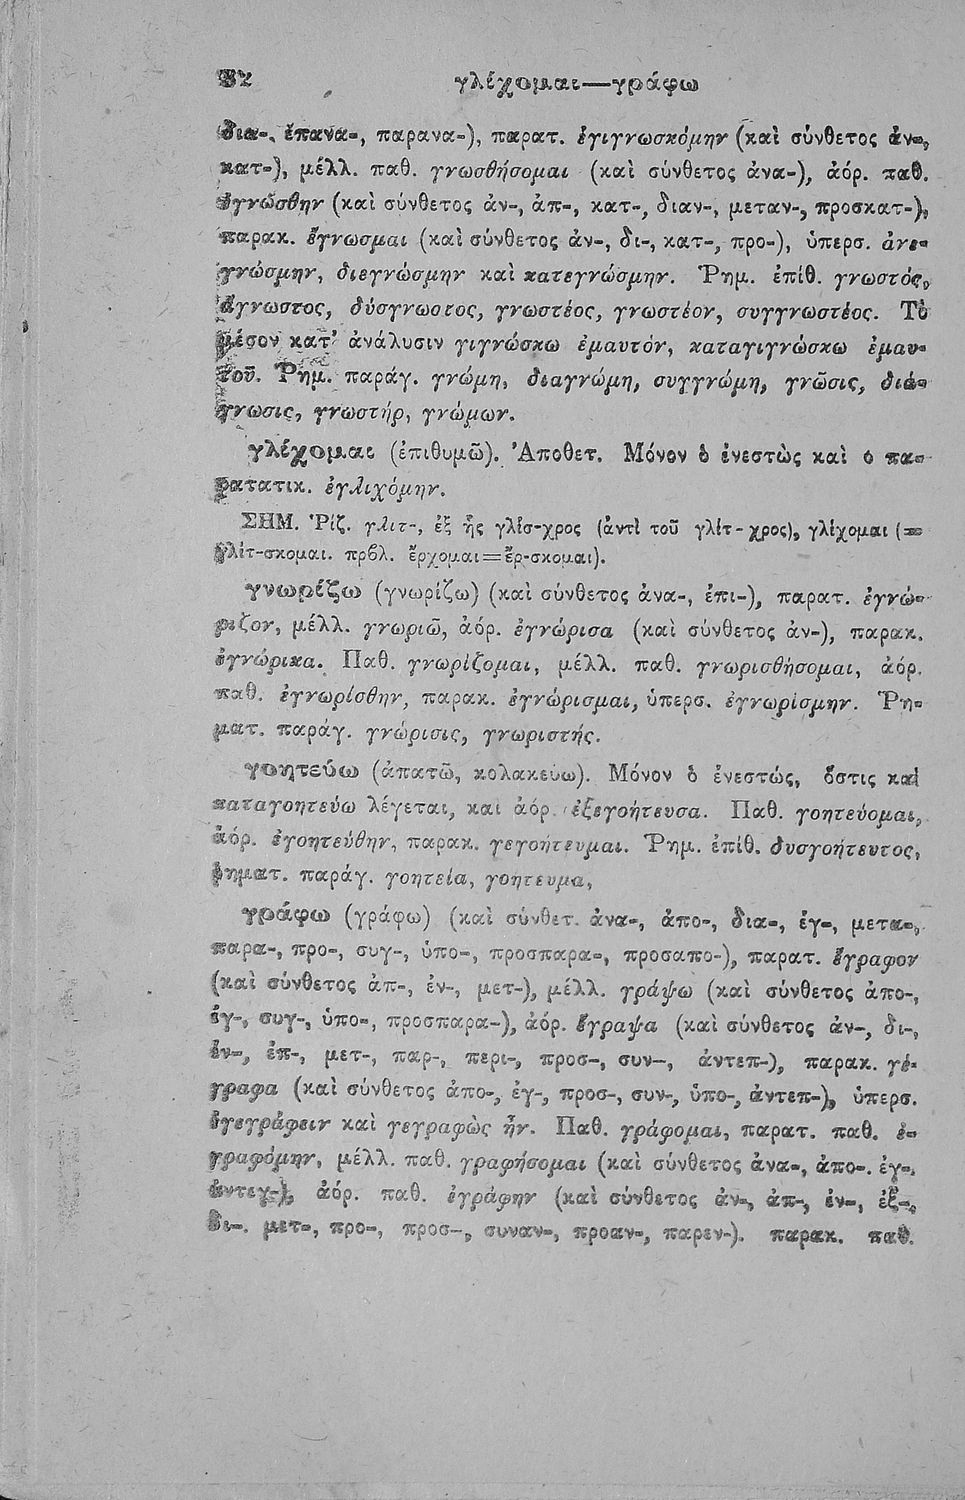 γλίχομαι—γράφω
δια-, ἐπανα-, παρανα-), παρατ. ἐγιγνωσκόμην (καὶ σύνθετος ἀν-,
κατ-), μέλλ. παθ. γνωσθήσομαι (καὶ σύνθετος ἀνα-), ἀόρ. παθ.
ἐγνώσθην (καὶ σύνθετος ἀν-, ἀπ-, κατ-, διαν-, μεταν-, προσκατ-),
παρακ. ἔγνωσμαι (καὶ σύνθετος ἀν-, δι-, κατ-, προ-), ὑπερσ. ἀνε-
γνώσμην, διεγνώσμην καὶ κατεγνώσμην. Ῥημ. ἐπίθ. γνωστός,
ἄγνωστος, δύσγνωστος, γνωστέος, γνωστέον, συγγνωστέος. Τὸ
μέσον κατ' ἀνάλυσιν γιγνώσκω ἐμαυτόν, καταγιγνώσκω ἐμαυ-
τοῦ. Ῥημ. παράγ. γνώμη, διαγνώμη, συγγνώμη, γνῶσις, διά-
γνωσις, γνωστήρ, γνώμων.
γλίχομαι (ἐπιθυμῶ). Ἀποθετ. Μόνον ὁ ἐνεστὼς καὶ ὁ πα-
ρατατικ. ἐγλιχόμην.
ΣΗΜ. Ῥίζ. γλιτ-, ἐξ ἧς γλίσ-χρος (ἀντὶ τοῦ γλίτ-χρος), γλίχομαι (=
γλίτ-σκομαι. πρβλ. ἔρχομαι=ἔρ-σκομαι).
γνωρίζω (γνωρίζω) (καὶ σύνθετος ἀνα-, ἐπι-), παρατ. ἐγνώ-
ριζον, μέλλ. γνωριῶ, ἀόρ. ἐγνώρισα (καὶ σύνθετος ἀν-), παρακ.
ἐγνώρικα. Παθ. γνωρίζομαι, μέλλ. παθ. γνωρισθήσομαι, ἀόρ.
παθ. ἐγνωρίσθην, παρακ. ἐγνώρισμαι, ὑπερσ. ἐγνωρίσμην. Ῥη-
ματ. παράγ. γνώρισις, γνωριστής.
γοητεύω (ἀπατῶ, κολακεύω). Μόνον ὁ ἐνεστώς, ὅστις καὶ
καταγοητεύω λέγεται, καὶ ἀόρ. ἐξεγοήτευσα. Παθ. γοητεύομαι,
ἀόρ. ἐγοητεύθην, παρακ. γεγοήτευμαι. Ῥημ. ἐπίθ. δυσγοήτευτος,
ῥηματ. παράγ. γοητεία, γοήτευμα,
γράφω (γράφω) (καὶ σύνθετ. ἀνα-, ἀπο-, δια-, ἐγ-, μετα-,
παρα-, προ-, συγ-, ὑπο-, προσπαρα-, προσαπο-), παρατ. ἔγραφον
(καὶ σύνθετος ἀπ-, ἐν-, μετ-), μέλλ. γράψω (καὶ σύνθετος ἀπο-,
ἐγ-, συγ-, ὑπο-, προσπαρα-), ἀόρ. ἔγραψα (καὶ σύνθετος ἀν-, δι-,
ἐν-, ἐπ-, μετ-, παρ-, περι-, προσ-, συν-, ἀντεπ-), παρακ. γέ-
γραφα (καὶ σύνθετος ἀπο-, ἐγ-, προσ-, συν-, ὑπο-, ἀντεπ-), ὑπερσ.
ἐγεγράφειν καὶ γεγραφὼς ἦν. Παθ. γράφομαι, παρατ. παθ. ἐ-
γραφόμην, μέλλ. παθ. γραφήσομαι (καὶ σύνθετος ἀνα-, ἀπο-. ἐγ-,
ἀντεγ-), ἀόρ. παθ. ἐγράφην (καὶ σύνθετος ἀν-, ἀπ-, ἐν-, ἐξ-,
δι-. μετ-, προ-, προσ-, συναν-, προαν-, παρεν-). παρακ. παθ.